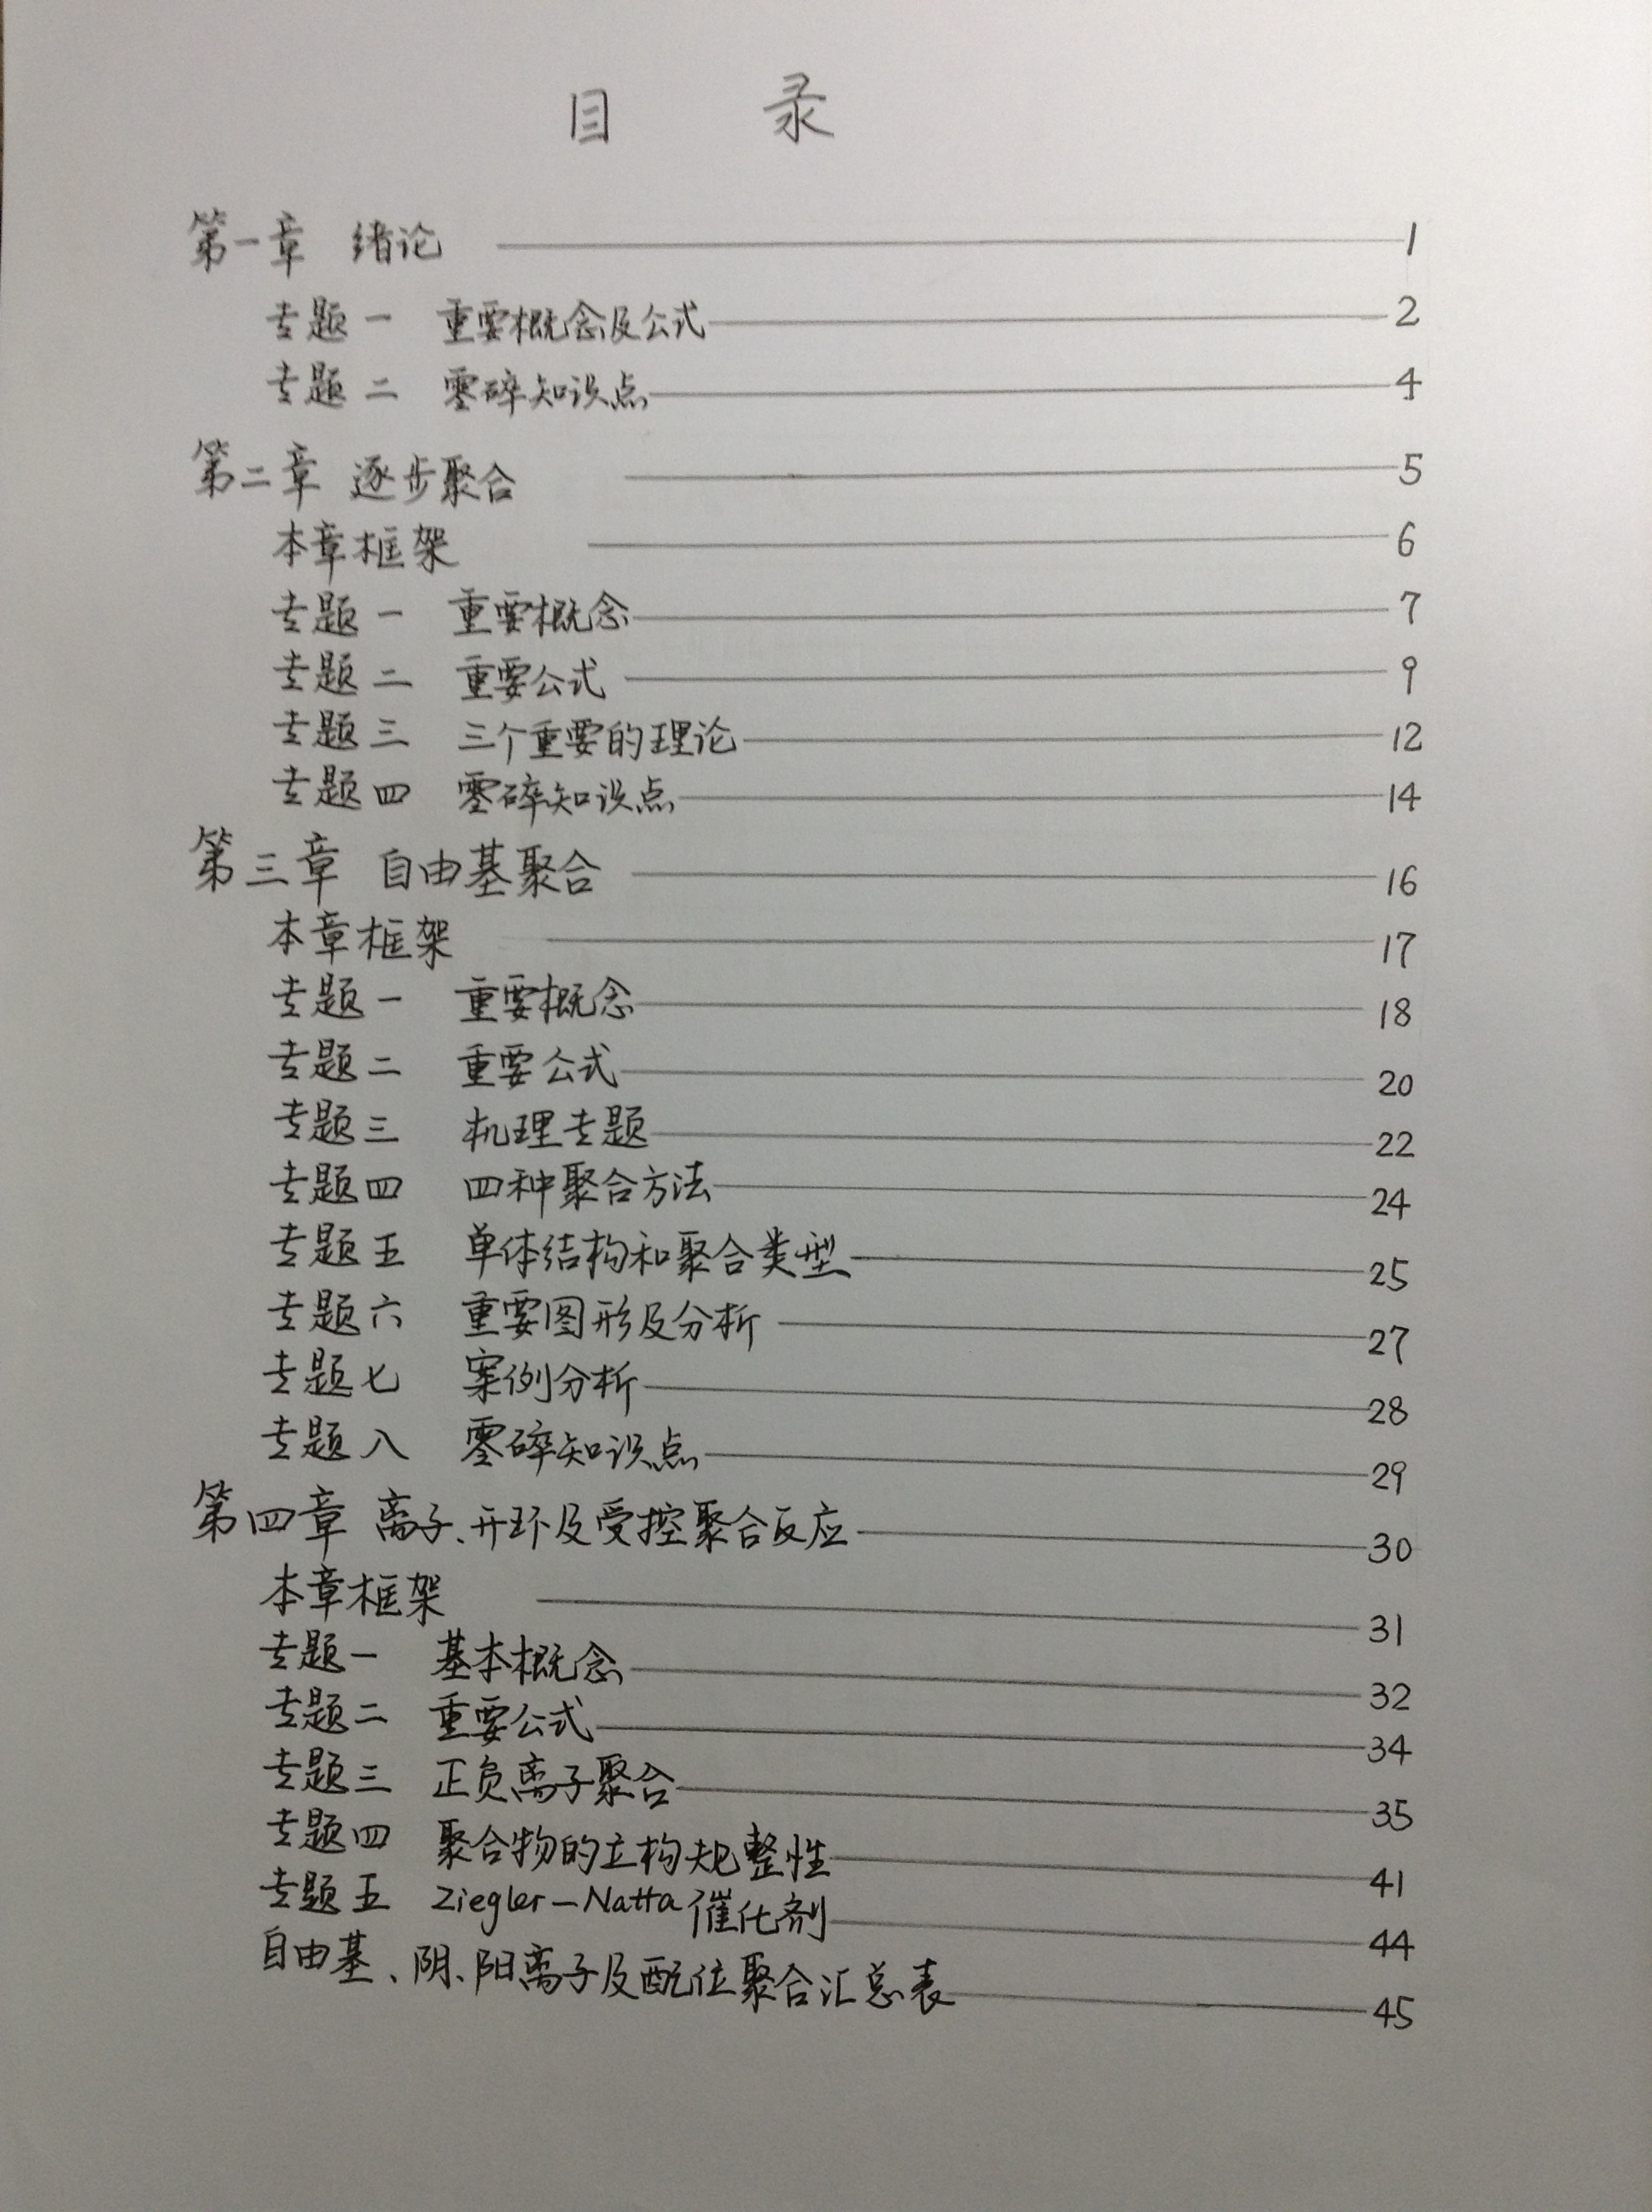 目 录
第一章 绪论 1
专题一 重要概念及公式 2
专题二 零碎知识点 4
第二章 逐步聚合 5
本章框架 6
专题一 重要概念 7
专题二 重要公式 9
专题三 三个重要的理论 12
专题四 零碎知识点 14
第三章 自由基聚合 16
本章框架 17
专题一 重要概念 18
专题二 重要公式 20
专题三 机理专题 22
专题四 四种聚合方法 24
专题五 单体结构和聚合类型 25
专题六 重要图形及分析 27
专题七 案例分析 28
专题八 零碎知识点 29
第四章 离子、开环及受控聚合反应 30
本章框架 31
专题一 基本概念 32
专题二 重要公式 34
专题三 正负离子聚合 35
专题四 聚合物的立构规整性 41
专题五 Ziegler-Natta催化剂 44
自由基、阴、阳离子及配位聚合汇总表 45